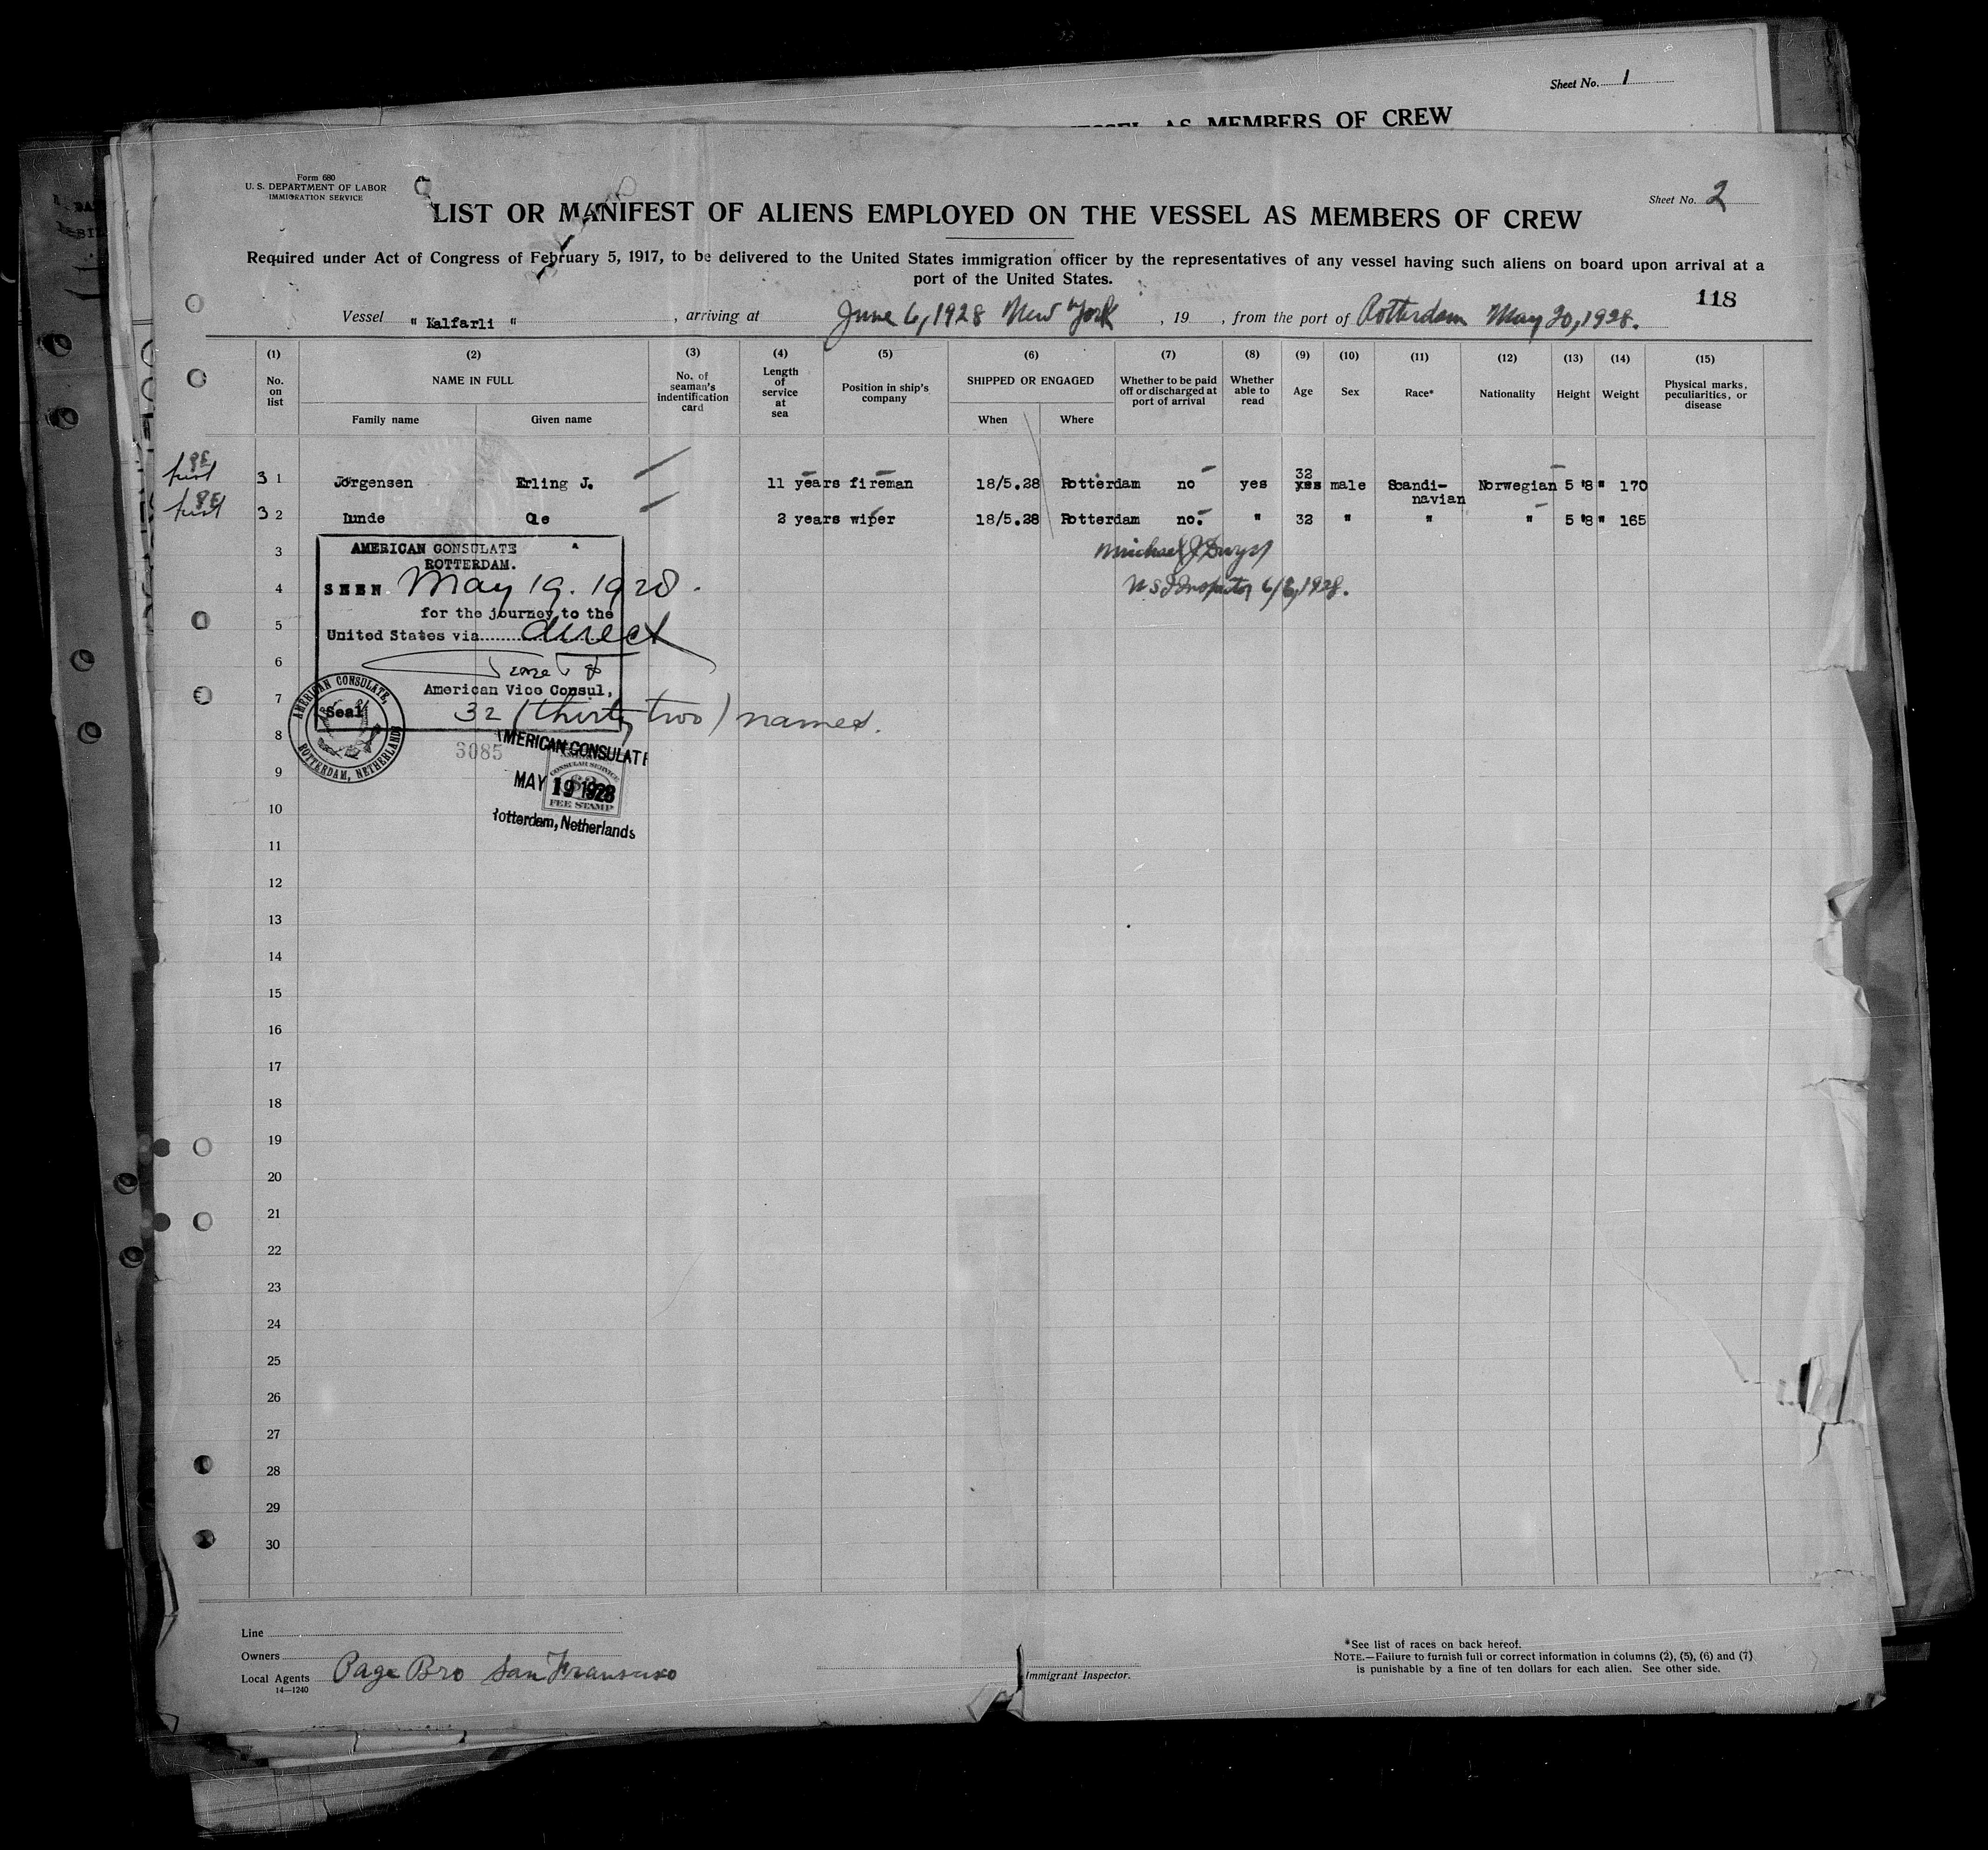 Sheet No. 1
VESSEL AS MEMBERS OF CREW
Form 680
U. S. DEPARTMENT OF LABOR
IMMIGRATION SERVICE
Sheet No. 2
LIST OR MANIFEST OF ALIENS EMPLOYED ON THE VESSEL AS MEMBERS OF CREW
Required under Act of Congress of February 5, 1917, to be delivered to the United States immigration officer by the representatives of any vessel having such aliens on board upon arrival at a
port of the United States.
118
Vessel " Kalfarli " , arriving at June 6, 1928 New York , 19 , from the port of Rotterdam May 20, 1928.
(1) (2) (3) (4) (5) (6) (7) (8) (9) (10) (11) (12) (13) (14) (15)
No. on list
NAME IN FULL
Family name Given name
No. of seaman's indentification card
Length of service at sea
Position in ship's company
SHIPPED OR ENGAGED
When Where
Whether to be paid off or discharged at port of arrival
Whether able to read
Age
Sex
Race*
Nationality
Height
Weight
Physical marks, peculiarities, or disease
first PE 3 1 Jørgensen Erling J. 11 years fireman 18/5.28 Rotterdam no yes 32 male Scandi-navian Norwegian 5 "8" 170
first PE 3 2 Lunde Ole 2 years wiper 18/5.28 Rotterdam no. " 32 " " " 5 "8" 165
3
AMERICAN CONSULATE
ROTTERDAM.
Michael J Dwyer
4
SEEN May 19. 1928.
U S I Inspector 6/6, 1928.
for the journey to the
5
United States via direct
6
American Vice Consul,
7
Seal
32 (thirty two) names.
AMERICAN CONSULATE, ROTTERDAM, NETHERLANDS
8
3085
AMERICAN CONSULATE
9
MAY 19 1928
CONSULAR SERVICE
FEE STAMP
10
Rotterdam, Netherlands
11
12
13
14
15
16
17
18
19
20
21
22
23
24
25
26
27
28
29
30
Line
Owners
Local Agents Page Bro San Fransisco
14—1240
Immigrant Inspector.
*See list of races on back hereof.
NOTE.—Failure to furnish full or correct information in columns (2), (5), (6) and (7)
is punishable by a fine of ten dollars for each alien. See other side.